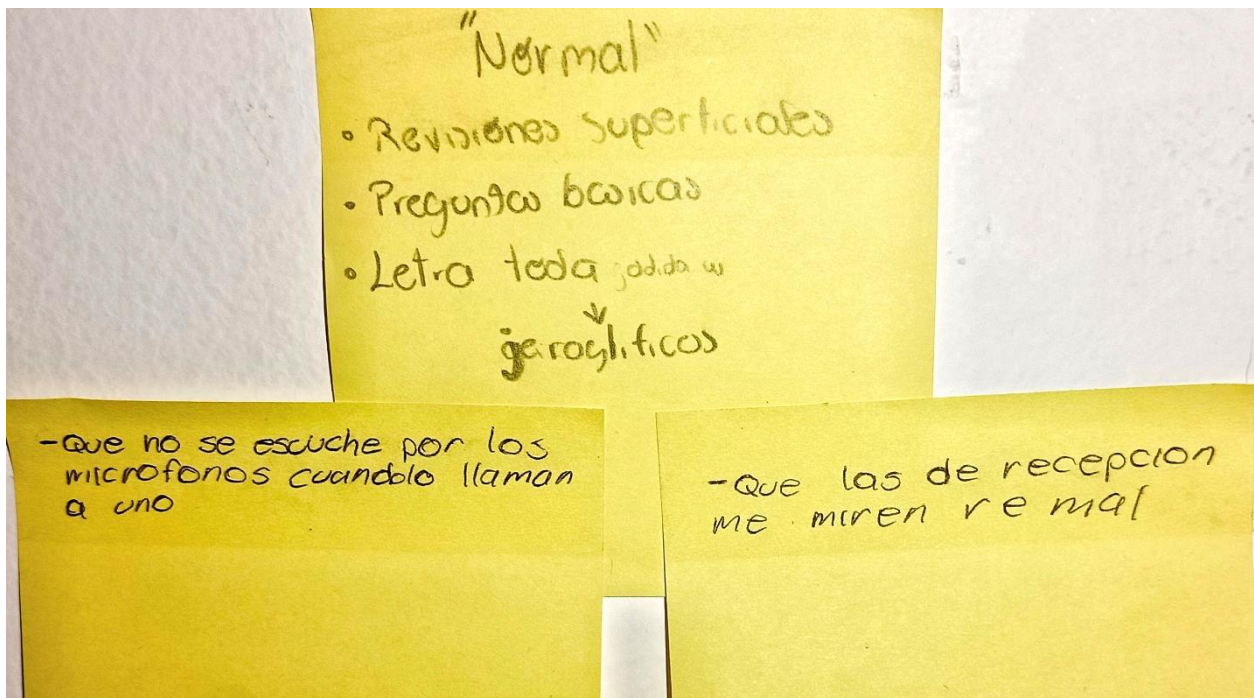 "Normal"
• Revisiones superficiales
• Preguntas basicas
• Letra toda
↓
geroglificos
-Que no se escuche por los
microfonos cuandolo llaman
a uno
-Que las de recepcion
me miren re mal